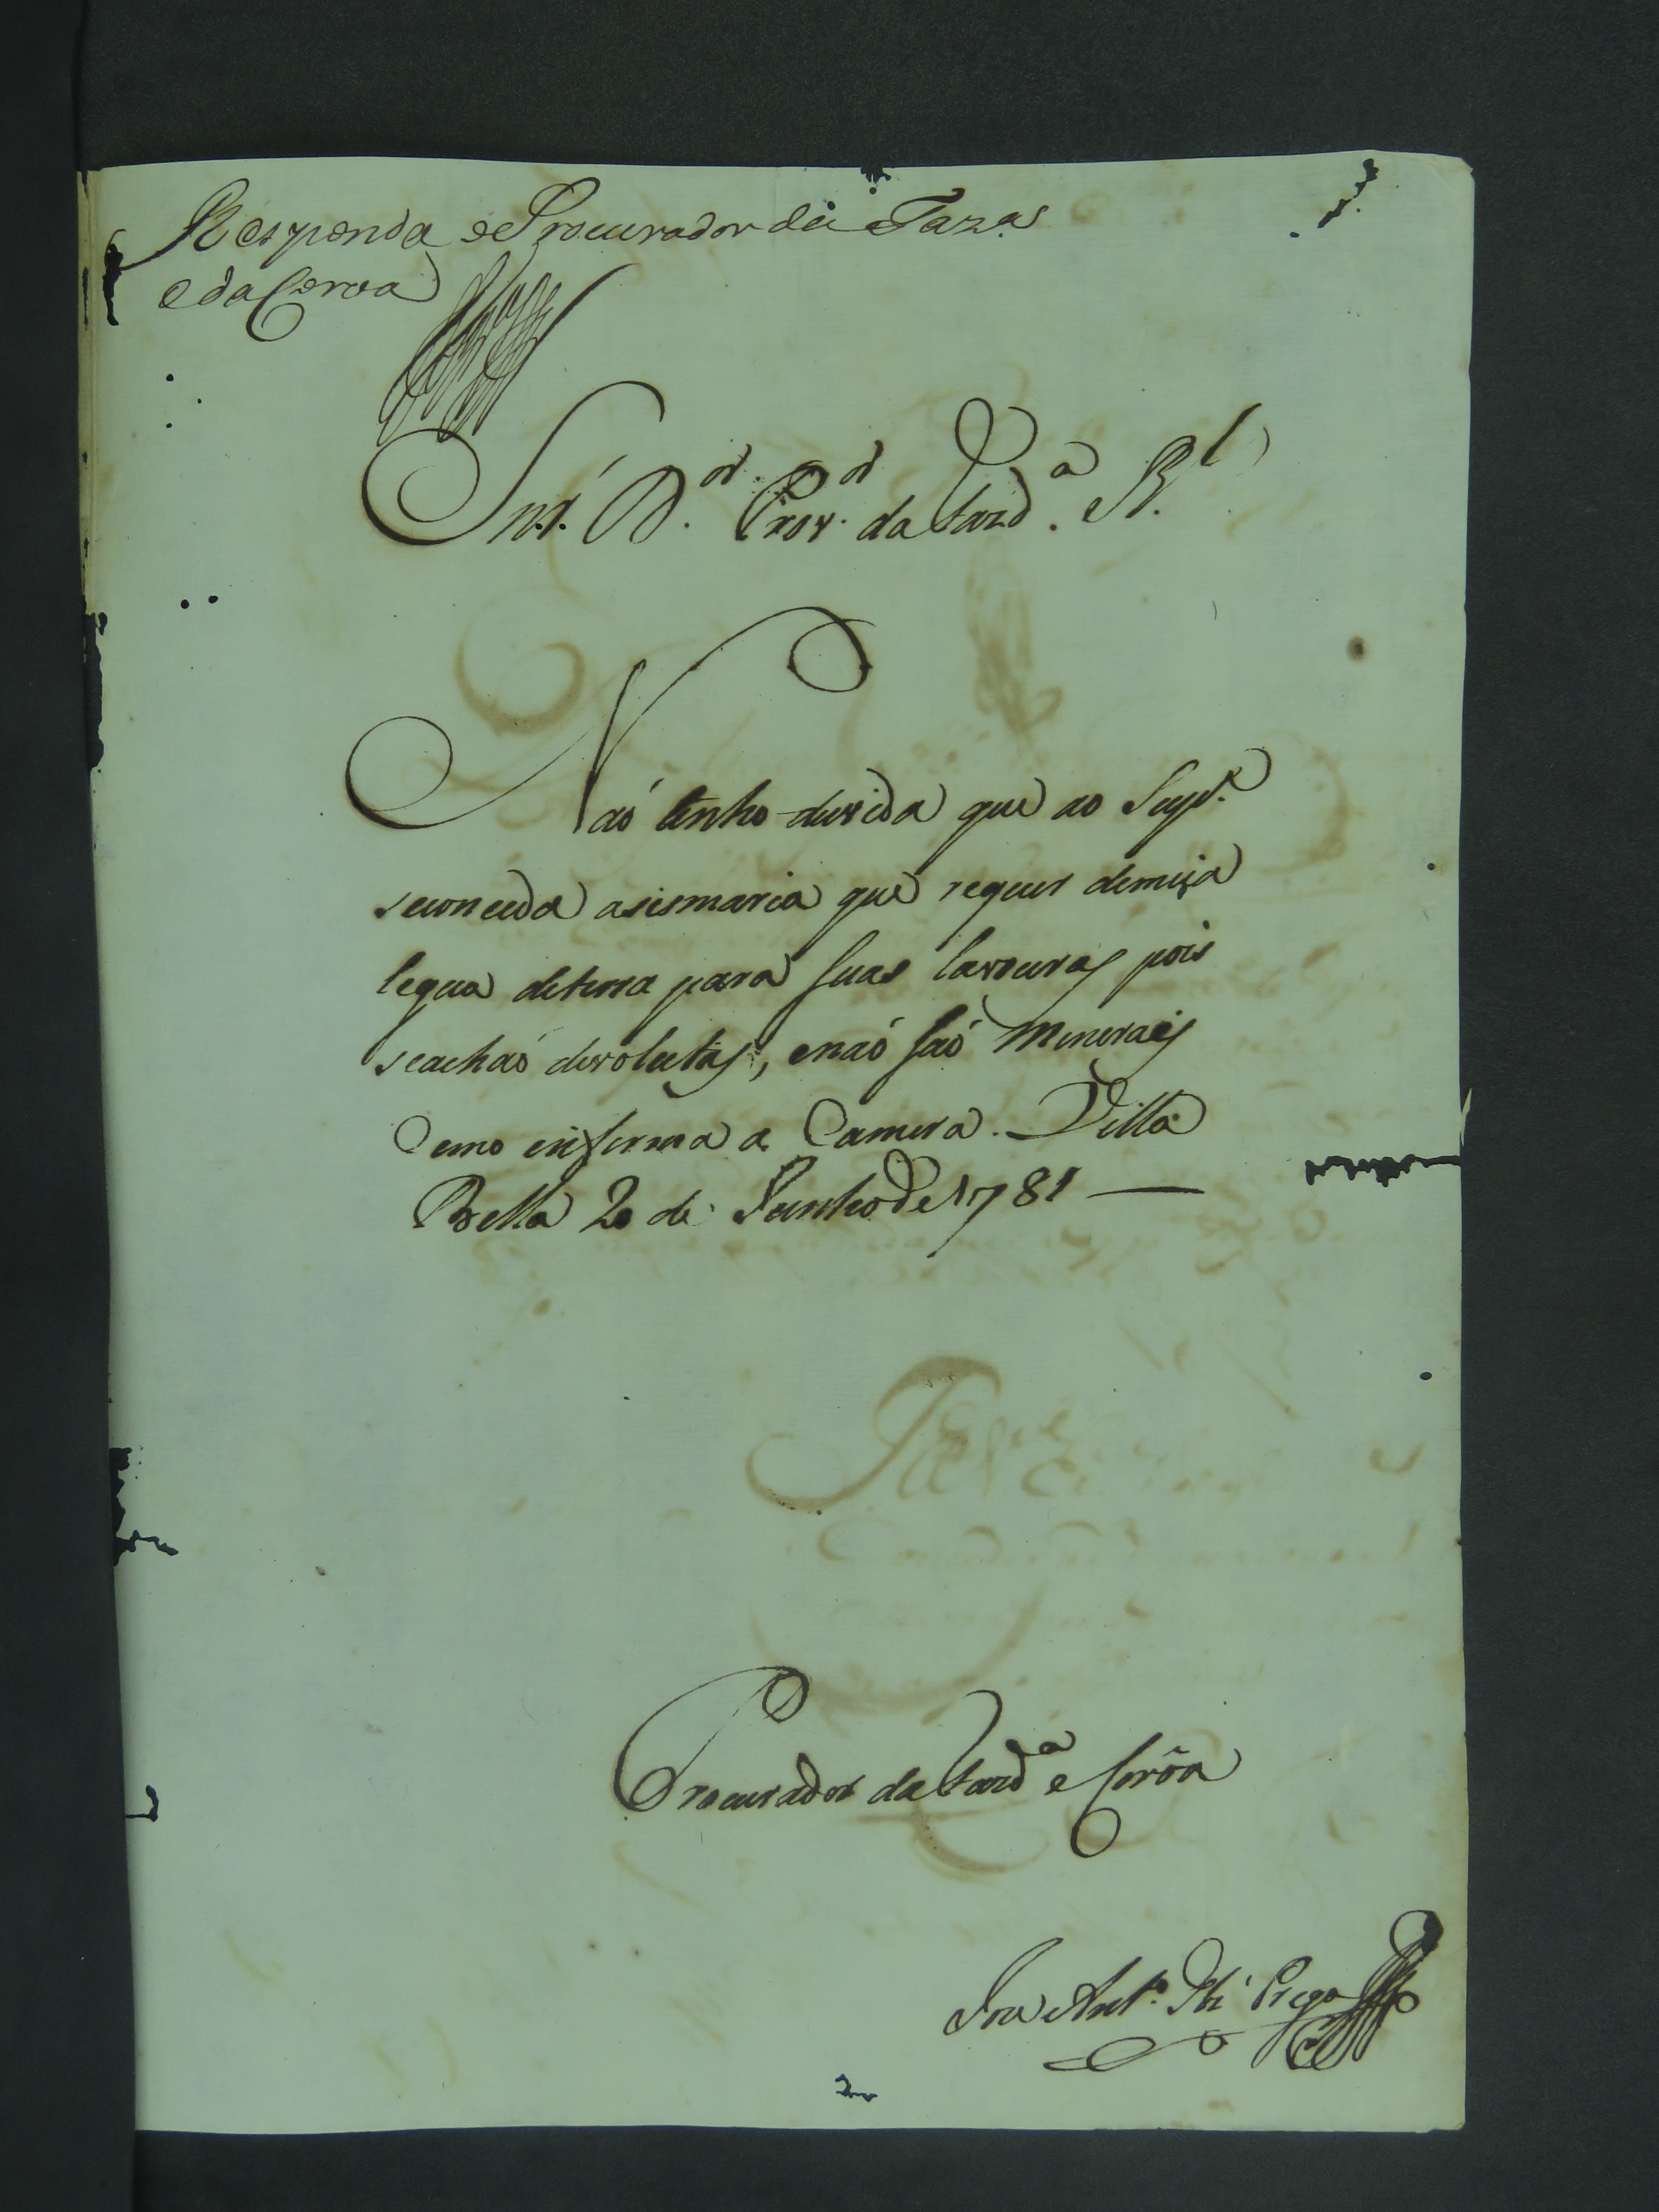 Responda o Procurador da Faza
e da Coroa
Snr. D.or Prov.or da Fazd.a R.l
Naó tenho duvida que ao Sup.e
seconceda asismaria que requer demeya
legua deterra para suas lavouras pois
seachaó devolutas, enaó saó Mineraes
Como informa a Camera. Villa
Bella 20 de Junho de 1781 —
Procurador da Fazd.a e Corôa
Ant.o